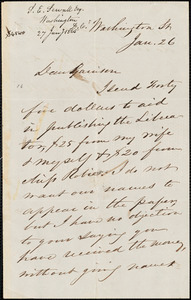 S. E. Sewall Esq.
Washington St.
27 Jany 1864
Washington St
Jan. 26
Dear Garrison
I send Forty
five dollars to aid
in publishing the Libera-
tor, $25 from my wife
& myself & $20 from
Miss Robie. I do not
want our names to
appear in the paper,
but I have no objection
to your saying you
have received the money,
without giving names